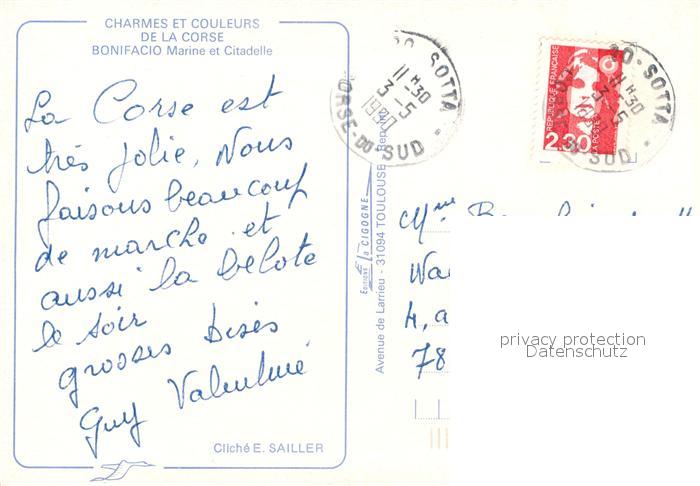 CHARMES ET COULEURS
DE LA CORSE
BONIFACIO Marine et Citadelle
La Corse est
très jolie, Nous
faisons beaucoup
de marche et
aussi la belote
le soir
grosses bises
Guy Valentine
Cliché E. SAILLER
SOTTA
11 H 30
3-5
1990
CORSE-DU-SUD
Editions La CIGOGNE
Avenue de Larrieu - 31094 TOULOUSE
REPUBLIQUE FRANÇAISE
2,30
LA POSTE
SOTTA
11 H 30
3-5
SUD
Mme
4, a
78
privacy protection
Datenschutz